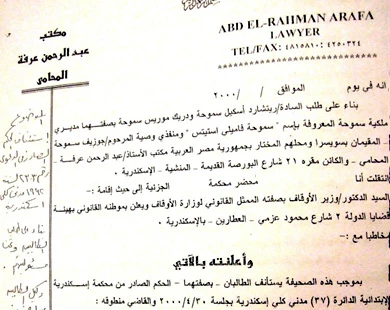 مكتب
عبد الرحمن عرفة
المحامى
ABD EL-RAHMAN ARAFA
LAWYER
TEL/FAX: ٤٨١٥٨١٠ : ٤٢٥٠٣٢٤
انه في يوم الموافق / / ٢٠٠٠
بناء على طلب السادة/ريتشارد أسكيل سموحة ودريك موريس سموحة بصفتهما مديري
ملكية سموحة المعروفة بإسم " سموحة فاميلى استيتس " ومنفذي وصية المرحوم/جوزيف سموحة
- المقيمان بسويسرا ومحلهم المختار بجمهورية مصر العربية مكتب الأستاذ/عبد الرحمن عرفة -
المحامي - والكائن مقره ٢١ شارع البورصة القديمة - المنشية - الإسكندرية .
انتقلت أنا محضر محكمة الجزئية إلى حيث إقامة :-
السيد الدكتور/وزير الأوقاف بصفته الممثل القانوني لوزارة الأوقاف ويعلن بموطنه القانوني بهيئة
قضايا الدولة ٢ شارع محمود عزمي - العطارين - بالإسكندرية .
مخاطبا مع :-
وأعلنته بالآتي
بموجب هذه الصحيفة يستأنف الطالبان - بصفتهما - الحكم الصادر من محكمة إسكندرية
الإبتدائية الدائرة (٣٧) مدني كلي إسكندرية بجلسة ٢٠٠٠/٤/٣٠ والقاضي منطوقه :